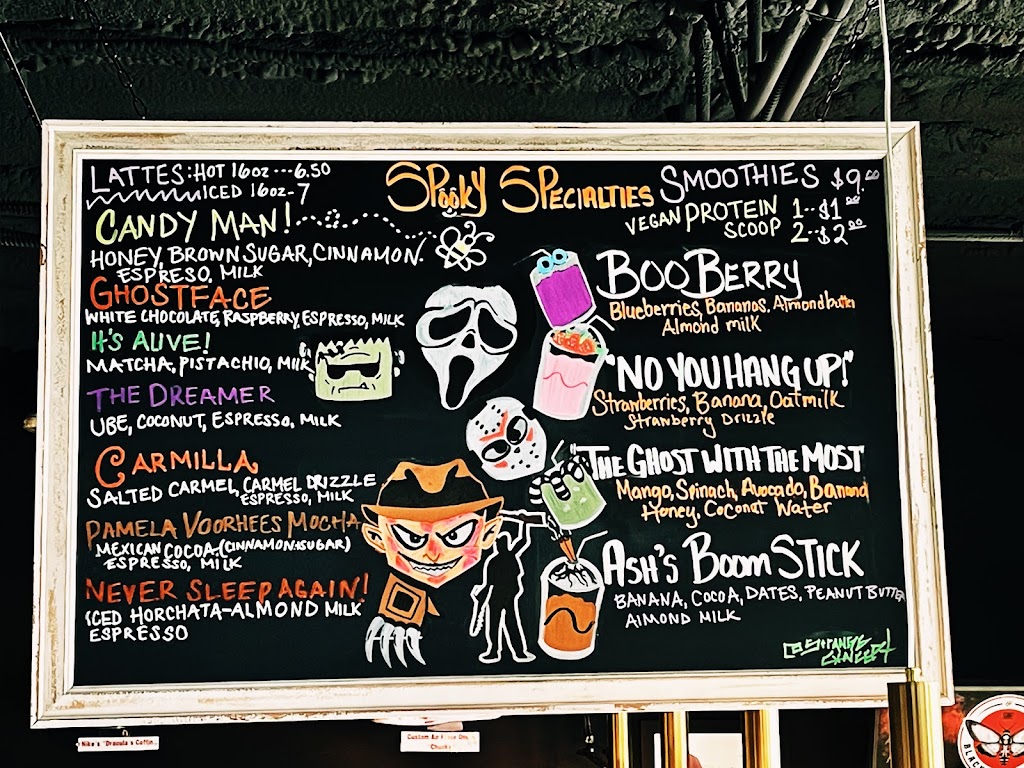 LATTES: HOT 16oz ---6.50
ICED 16oz-7
CANDY MAN!
HONEY, BROWN SUGAR, CINNAMON.
ESPRESO, MILK
GHOSTFACE
WHITE CHOCOLATE, RASPBERRY, ESPRESSO, MILK
IT'S ALIVE!
MATCHA, PISTACHIO, MILK
THE DREAMER
UBE, COCONUT, ESPRESSO, MILK
CARMILLA
SALTED CARMEL, CARMEL DRIZZLE
ESPRESSO, MILK
PAMELA VOORHEES MOCHA
MEXICAN COCOA-(CINNAMON+SUGAR)
ESPRESSO, MILK
NEVER SLEEP AGAIN!
ICED HORCHATA-ALMOND MILK
ESPRESSO
SPOOKY SPECIALTIES
SMOOTHIES $9.00
VEGAN PROTEIN 1--$1.00
SCOOP 2--$2.00
BOOBERRY
Blueberries, Bananas, Almond butter
Almond milk
"NO YOU HANG UP!"
Strawberries, Banana, Oatmilk
Strawberry Drizzle
THE GHOST WITH THE MOST
Mango, Spinach, Avocado, Banana
Honey, Coconut Water
ASH'S BOOM STICK
BANANA, COCOA, DATES, PEANUT BUTTER
ALMOND MILK
Nike's "Dracula's Coffin"
"Chucky"
BLACK